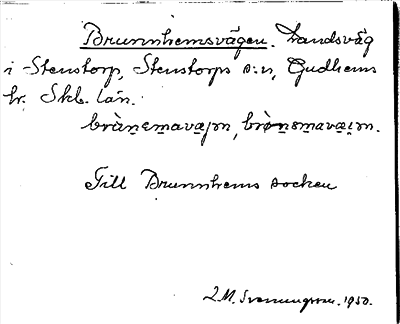 Brunnhemsvägen. Landsväg
i Stenstorp, Stenstorps s:n, Gudhems
hr. Skb. län.
Till Brunnhems socken
1950.